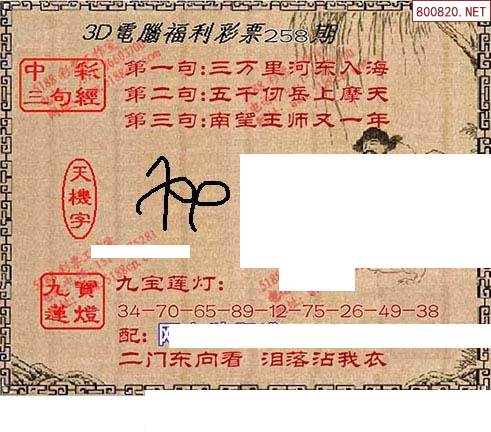 800820.NET
3D電腦福利彩票258期
中彩三句經
第一句:三万里河东入海
第二句:五千仞岳上摩天
第三句:南望王师又一年
天機字
九寶蓮燈
九宝莲灯:
34-70-65-89-12-75-26-49-38
配:
二门东向看 泪落沾我衣